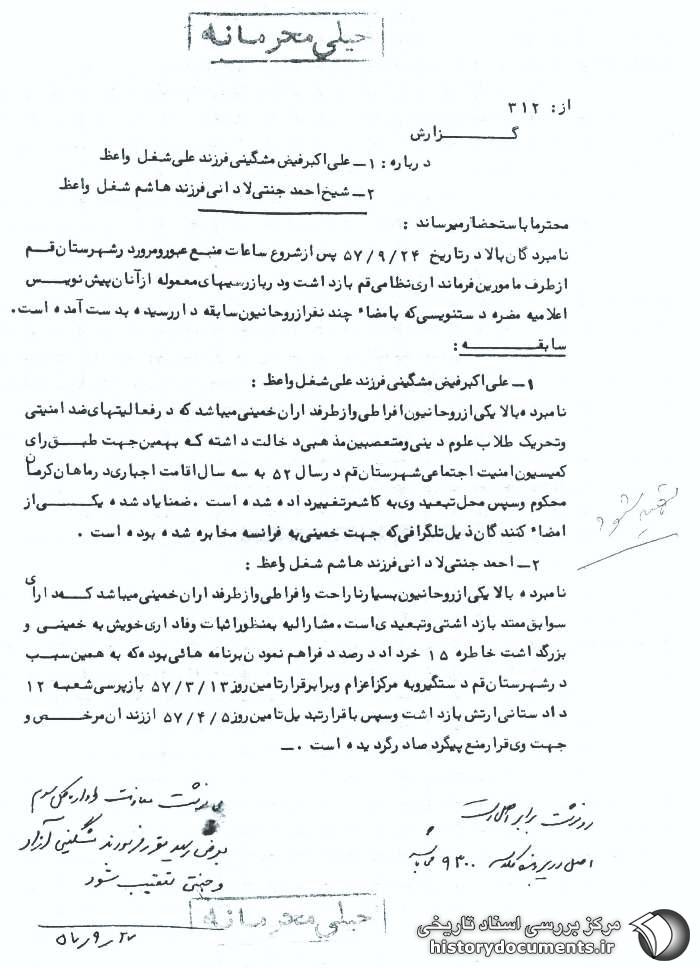 خیلی محرمانه
از: ۳۱۲
گـــزارش
درباره: ۱ــ علی اکبر فیض مشگینی فرزند علی شغل واعظ
۲ــ شیخ احمد جنتی لادانی فرزند هاشم شغل واعظ
محترما باستحضار میرساند :
نامبردگان بالا در تاریخ ۵۷/۹/۲۴ پس از شروع ساعات منع عبور و مرور در شهرستان قم
از طرف مامورین فرمانداری نظامی قم بازداشت و در بازرسیهای معموله از آنان پیش نویس
اعلامیه مضره دستنویسی که بامضاء چند نفر از روحانیون سابقه دار رسیده بدست آمده است.
سابقــــه :
۱ــ علی اکبر فیض مشگینی فرزند علی شغل واعظ :
نامبرده بالا یکی از روحانیون افراطی و از طرفداران خمینی میباشد که در فعالیتهای ضد امنیتی
و تحریک طلاب علوم دینی و متعصبین مذهبی دخالت داشته که بهمین جهت طبق رای
کمیسیون امنیت اجتماعی شهرستان قم در سال ۵۲ به سه سال اقامت اجباری در ماهان کرمان
محکوم و سپس محل تبعید وی به کاشمر تغییر داده شده است . ضمنا یاد شده یکــی از
امضاء کنندگان ذیل تلگرافی که جهت خمینی به فرانسه مخابره شده بوده است .
۲ــ احمد جنتی لادانی فرزند هاشم شغل واعظ :
نامبرده بالا یکی از روحانیون بسیار ناراحت و افراطی و از طرفداران خمینی میباشد کــه دارای
سوابق ممتد بازداشتی و تبعیدی است. مشارالیه بمنظور اثبات وفاداری خویش به خمینی و
بزرگداشت خاطره ۱۵ خرداد درصدد فراهم نمودن برنامه هائی بوده که به همین سبب
در شهرستان قم دستگیر و به مرکز اعزام و برابر قرار تامین روز ۵۷/۳/۱۳ بازپرسی شعبه ۱۲
دادستانی ارتش بازداشت و سپس با قرار تبدیل تامین روز ۵۷/۴/۵ از زندان مرخــص و
جهت وی قرار منع پیگرد صادر گردیده است .ــ
تهیه شود
رونوشت برابر اصل است
اصل در پرونده ۹۳۰۰ میباشد
معاونت اداره کل سوم
بعرض رسید مقرر فرمودند مشگینی آزاد
و جنتی تعقیب شود
خیلی محرمانه
مرکز بررسی اسناد تاریخی
historydocuments.ir